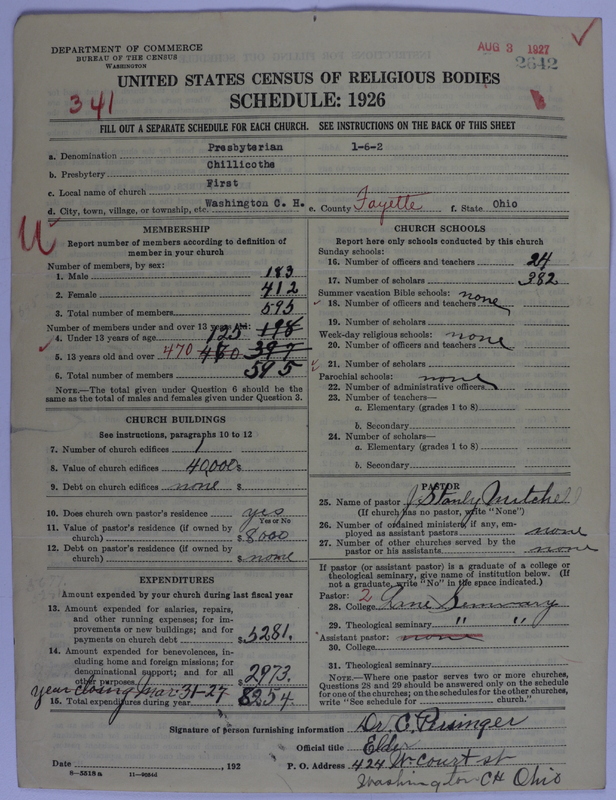 DEPARTMENT OF COMMERCE
BUREAU OF THE CENSUS
WASHINGTON
AUG 3 1927
2642
UNITED STATES CENSUS OF RELIGIOUS BODIES
341
SCHEDULE: 1926
FILL OUT A SEPARATE SCHEDULE FOR EACH CHURCH. SEE INSTRUCTIONS ON THE BACK OF THIS SHEET
a. Denomination Presbyterian 1-6-2
b. Presbytery Chillicothe
c. Local name of church First
d. City, town, village, or township, etc. Washington C. H. e. County Fayette f. State Ohio
MEMBERSHIP
Report number of members according to definition of
member in your church
Number of members, by sex:
1. Male 183
2. Female 412
3. Total number of members 595
Number of members under and over 13 years old:
4. Under 13 years of age 125 198
5. 13 years old and over 470 397
6. Total number of members 595
NOTE.—The total given under Question 6 should be the
same as the total of males and females given under Question 3.
CHURCH BUILDINGS
See instructions, paragraphs 10 to 12
7. Number of church edifices 1
8. Value of church edifices 40,000 $
9. Debt on church edifices none $
10. Does church own pastor's residence yes
Yes or No
11. Value of pastor's residence (if owned by
church) $ 8000
12. Debt on pastor's residence (if owned by
church) $ none
EXPENDITURES
Amount expended by your church during last fiscal year
13. Amount expended for salaries, repairs,
and other running expenses; for im-
provements or new buildings; and for
payments on church debt $ 5281.
14. Amount expended for benevolences, in-
cluding home and foreign missions; for
denominational support; and for all
other purposes 2973.
year closing Mar. 31-27
15. Total expenditures during year 8254.
CHURCH SCHOOLS
Report here only schools conducted by this church
Sunday schools:
16. Number of officers and teachers 24
17. Number of scholars 382
Summer vacation Bible schools: none
18. Number of officers and teachers
19. Number of scholars
Week-day religious schools: none
20. Number of officers and teachers
21. Number of scholars
Parochial schools: none
22. Number of administrative officers
23. Number of teachers—
a. Elementary (grades 1 to 8)
b. Secondary
24. Number of scholars—
a. Elementary (grades 1 to 8)
b. Secondary
PASTOR
25. Name of pastor J. Stanly Mitchell
(If church has no pastor, write "None")
26. Number of ordained ministers, if any, em-
ployed as assistant pastors none
27. Number of other churches served by the
pastor or his assistants none
If pastor (or assistant pastor) is a graduate of a college or
theological seminary, give name of institution below. (If
not a graduate, write "No" in the space indicated.)
Pastor: 2
28. College Seminary
29. Theological seminary " "
Assistant pastor: none
30. College
31. Theological seminary
NOTE.—Where one pastor serves two or more churches,
Questions 28 and 29 should be answered only on the schedule
for one of the churches; on the schedules for the other churches,
write "See schedule for church."
Signature of person furnishing information Dr. C. Persinger
Official title Elder
Date , 192 P. O. Address 424 W Court st
8-5518a
Washington CH Ohio